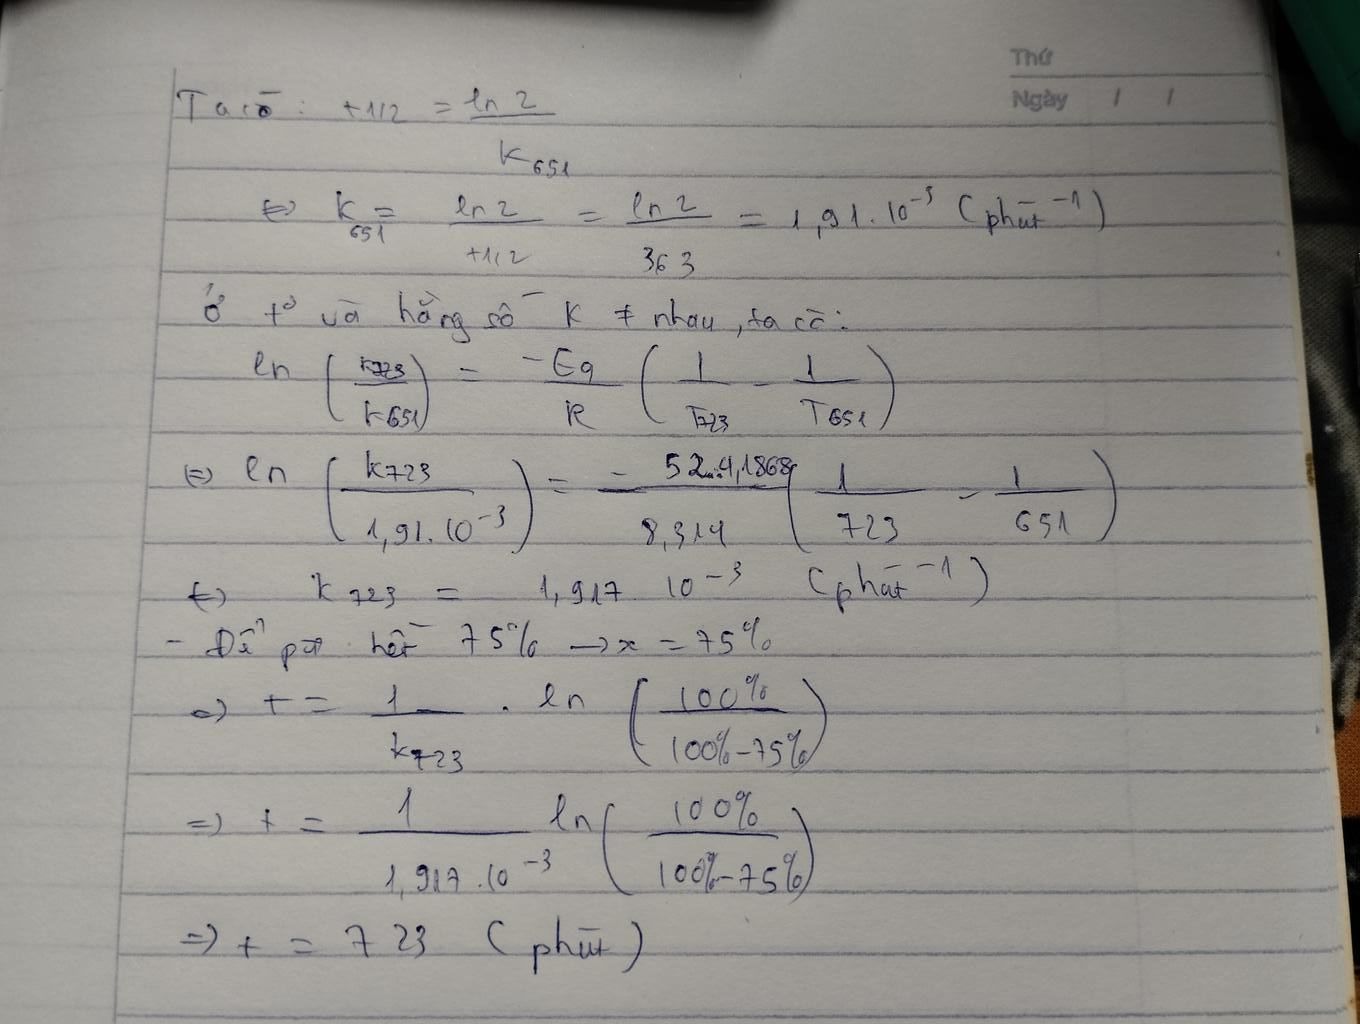 Thứ
Ngày / /
Ta có: t1/2 = ln 2 / K651
<=> K651 = ln 2 / t1/2 = ln 2 / 363 = 1,91.10^-3 (phút^-1)
Ở t° và hằng số K ≠ nhau, ta có:
ln (K723 / K651) = -Ea / R (1 / T723 - 1 / T651)
<=> ln (K723 / 1,91.10^-3) = - 52.4,1868 / 8,314 (1 / 723 - 1 / 651)
<=> K723 = 1,917 10^-3 (phút^-1)
- Để pư hết 75% -> x = 75%
=> t = 1 / K723 . ln (100% / 100%-75%)
=> t = 1 / 1,917.10^-3 ln (100% / 100%-75%)
=> t = 723 (phút)